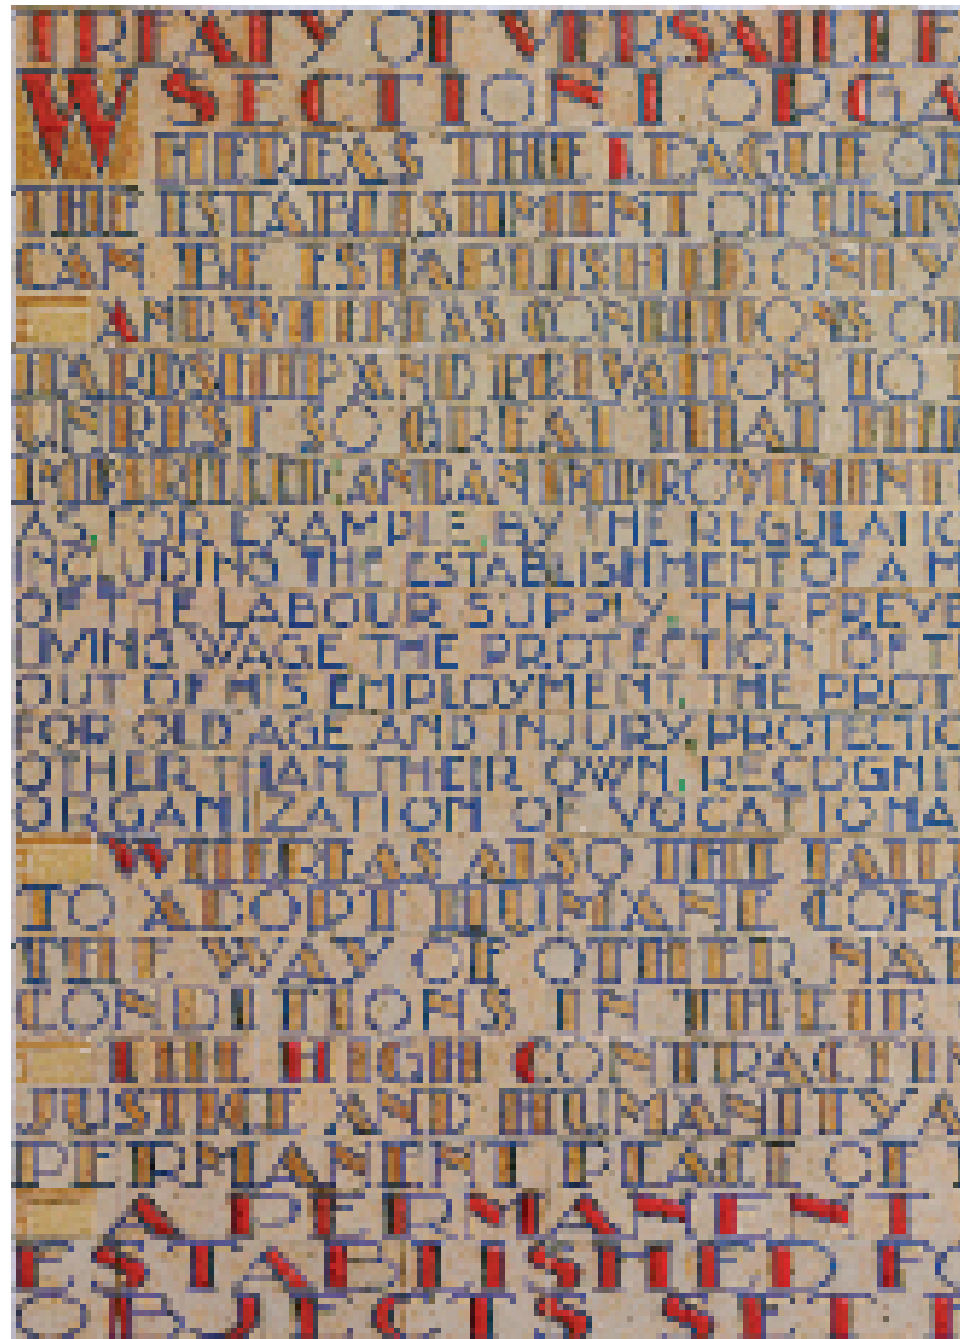 TREATY OF VERSAILLE
SECTION I ORGA
WHEREAS THE LEAGUE OF
THE ESTABLISHMENT OF UNIV
CAN BE ESTABLISHED ONLY
AND WHEREAS CONDITIONS OF
HARDSHIP AND PRIVATION TO
UNREST SO GREAT THAT THE
IMPERILLED: AND AN IMPROVEMENT
AS FOR EXAMPLE, BY THE REGULATIO
INCLUDING THE ESTABLISHMENT OF A M
OF THE LABOUR SUPPLY, THE PREVE
LIVING WAGE THE PROTECTION OF T
OUT OF HIS EMPLOYMENT, THE PROT
FOR OLD AGE AND INJURY, PROTECTIO
OTHER THAN THEIR OWN, RECOGNIT
ORGANIZATION OF VOCATIONA
WHEREAS ALSO THE FAILU
TO ADOPT HUMANE CON
THE WAY OF OTHER NAT
CONDITIONS IN THEIR
THE HIGH CONTRACTIN
JUSTICE AND HUMANITY A
PERMANENT PEACE OF T
A PERMANENT
ESTABLISHED FO
OBJECTS SET F